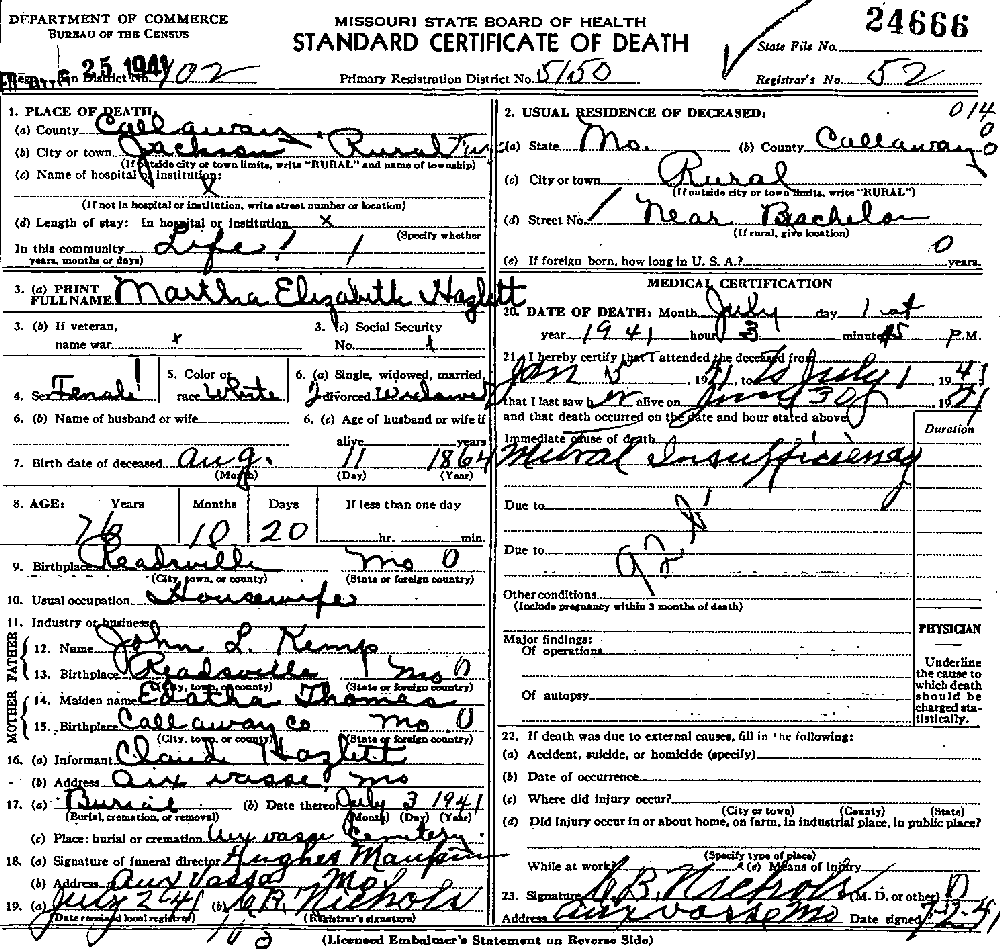 DEPARTMENT OF COMMERCE
BUREAU OF THE CENSUS
MISSOURI STATE BOARD OF HEALTH
STANDARD CERTIFICATE OF DEATH
24666
State File No.
25 1941
District No. 102
Primary Registration District No. 5150
Registrar's No. 52
1. PLACE OF DEATH:
(a) County Callaway
(b) City or town Jackson Rural
(If outside city or town limits, write "RURAL" and name of township)
(c) Name of hospital or institution:
x
(If not in hospital or institution, write street number or location)
(d) Length of stay: In hospital or institution x
(Specify whether
In this community Life
years, months or days)
2. USUAL RESIDENCE OF DECEASED:
014
0
0
(a) State Mo. (b) County Callaway
(c) City or town Rural
(If outside city or town limits, write "RURAL")
(d) Street No. Near Bachelor
(If rural, give location)
0
(e) If foreign born, how long in U. S. A.? years.
3. (a) PRINT FULL NAME Martha Elizabeth Hazlett
3. (b) If veteran, name war x
3. (c) Social Security No.
4. Sex Female
5. Color or race White
6. (a) Single, widowed, married, divorced Widowed
6. (b) Name of husband or wife
6. (c) Age of husband or wife if alive years
7. Birth date of deceased Aug. 11 1864
(Month) (Day) (Year)
8. AGE: Years Months Days If less than one day
76 10 20 hr. min.
9. Birthplace Readsville Mo 0
(City, town, or county) (State or foreign country)
10. Usual occupation Housewife
11. Industry or business
FATHER
12. Name John L. Kemp
13. Birthplace Readsville Mo 0
(City, town, or county) (State or foreign country)
MOTHER
14. Maiden name Thomas
15. Birthplace Callaway Co Mo 0
(City, town, or county) (State or foreign country)
16. (a) Informant Claude Hazlett
(b) Address Aux vasse, Mo
17. (a) Burial (b) Date thereof July 3 1941
(Burial, cremation, or removal) (Month) (Day) (Year)
(c) Place: burial or cremation Aux vasse Cemetery
18. (a) Signature of funeral director Hughes Maupin
(b) Address Aux vasse Mo
19. (a) July 2-41 (b) C B. Nichols
(Date received local registrar) (Registrar's signature)
MEDICAL CERTIFICATION
20. DATE OF DEATH: Month July day 1 st
year 1941 hour 3 minute 45 P.M.
21. I hereby certify that I attended the deceased from
Jan 5, 1941, to July 1 1941
that I last saw h alive on 30, 19
and that death occurred on the date and hour stated above.
Immediate cause of death
Duration
Mitral Insufficiency
Due to
Due to
92
Other conditions
(Include pregnancy within 3 months of death)
Major findings:
Of operations
Of autopsy
PHYSICIAN
Underline
the cause to
which death
should be
charged sta-
tistically.
22. If death was due to external causes, fill in the following:
(a) Accident, suicide, or homicide (specify)
(b) Date of occurrence
(c) Where did injury occur?
(City or town) (County) (State)
(d) Did injury occur in or about home, on farm, in industrial place, in public place?
(Specify type of place)
While at work? (e) Means of injury
23. Signature C B. Nichols (M. D. or other) D
Address Aux vasse Mo Date signed 7-2-41
(Licensed Embalmer's Statement on Reverse Side)